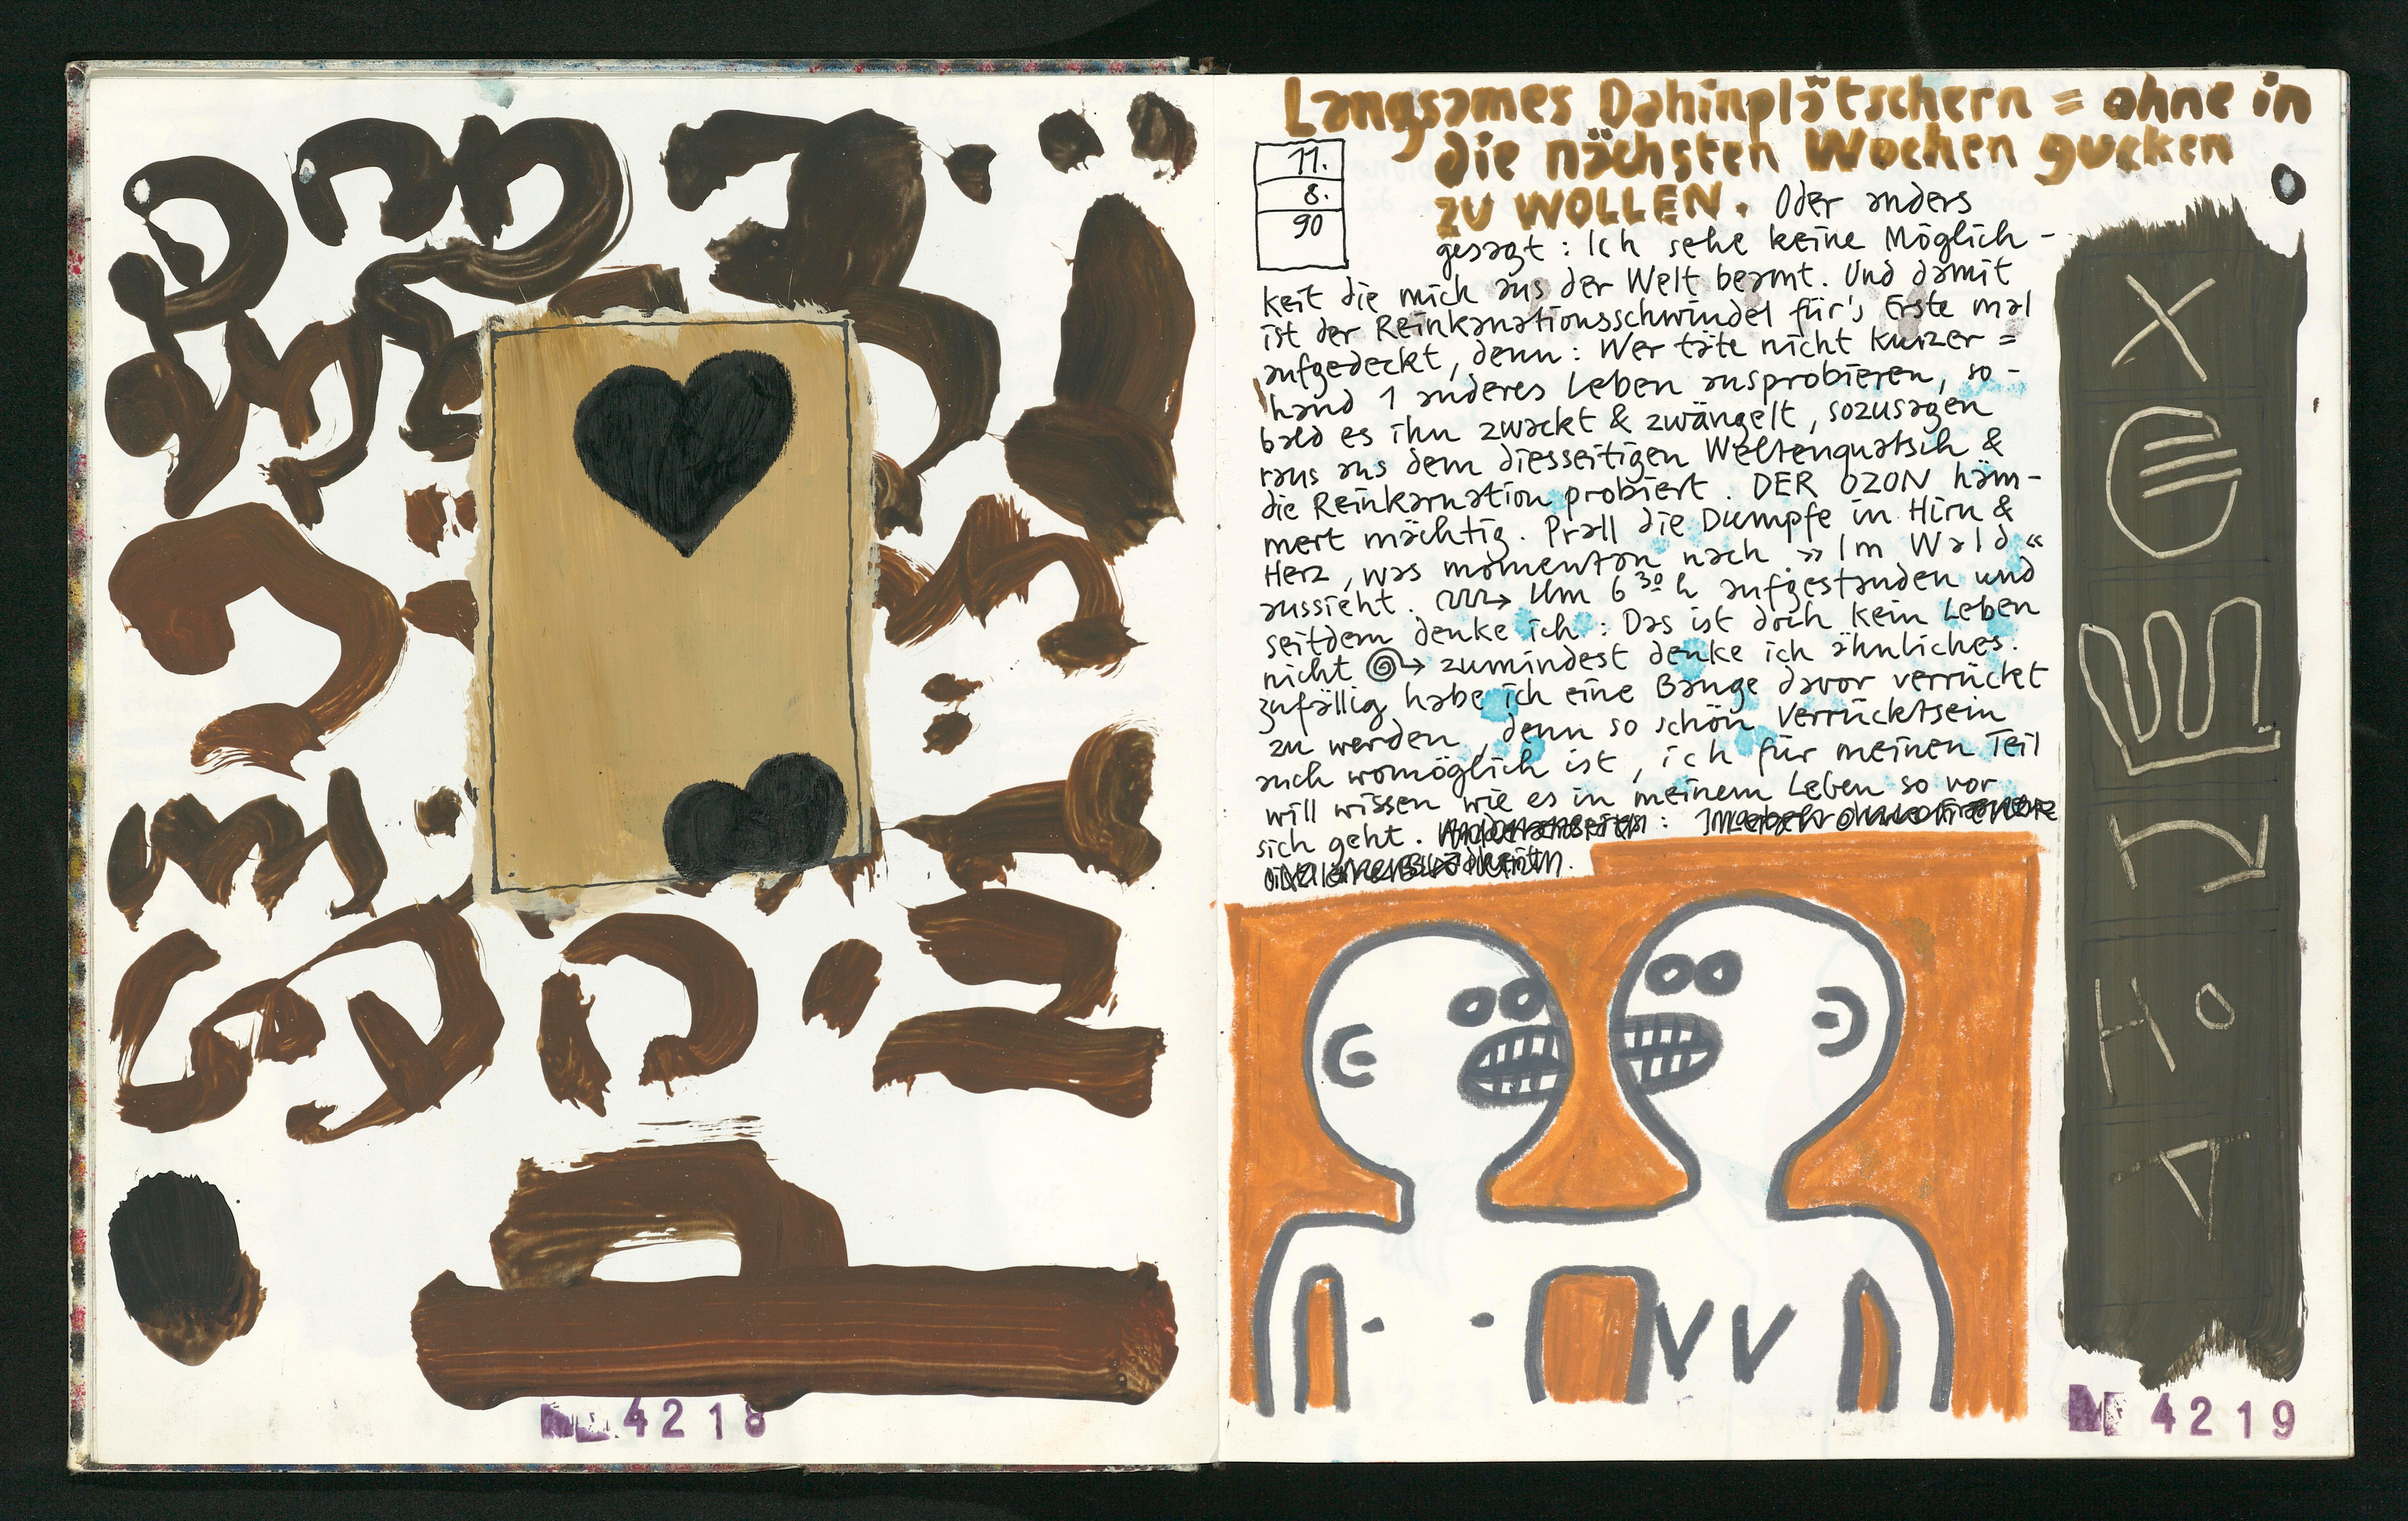 Langsames Dahinplätschern = ohne in
die nächsten Wochen gucken
11.
8.
90
ZU WOLLEN. Oder anders
gesagt : Ich sehe keine Möglich-
keit die mich aus der Welt beamt. Und damit
ist der Reinkanationsschwindel für's Erste mal
aufgedeckt, denn : Wer täte nicht kurzer=
hand 1 anderes Leben ausprobieren, so-
bald es ihn zwackt & zwängelt, sozusagen
raus aus dem diesseitigen Weltenquatsch &
die Reinkarnation probiert. DER OZON häm-
mert mächtig. Prall die Dumpfe in Hirn &
Herz, was momentan nach »Im Wald«
aussieht. → Um 6 30 h aufgestanden und
seitdem denke ich : Das ist doch kein Leben
nicht → zumindest denke ich ähnliches.
Zufällig habe ich eine Bange davor verrückt
zu werden, denn so schön Verrücktsein
auch womöglich ist, ich für meinen Teil
will wissen wie es in meinem Leben so vor
sich geht.
4218
4219